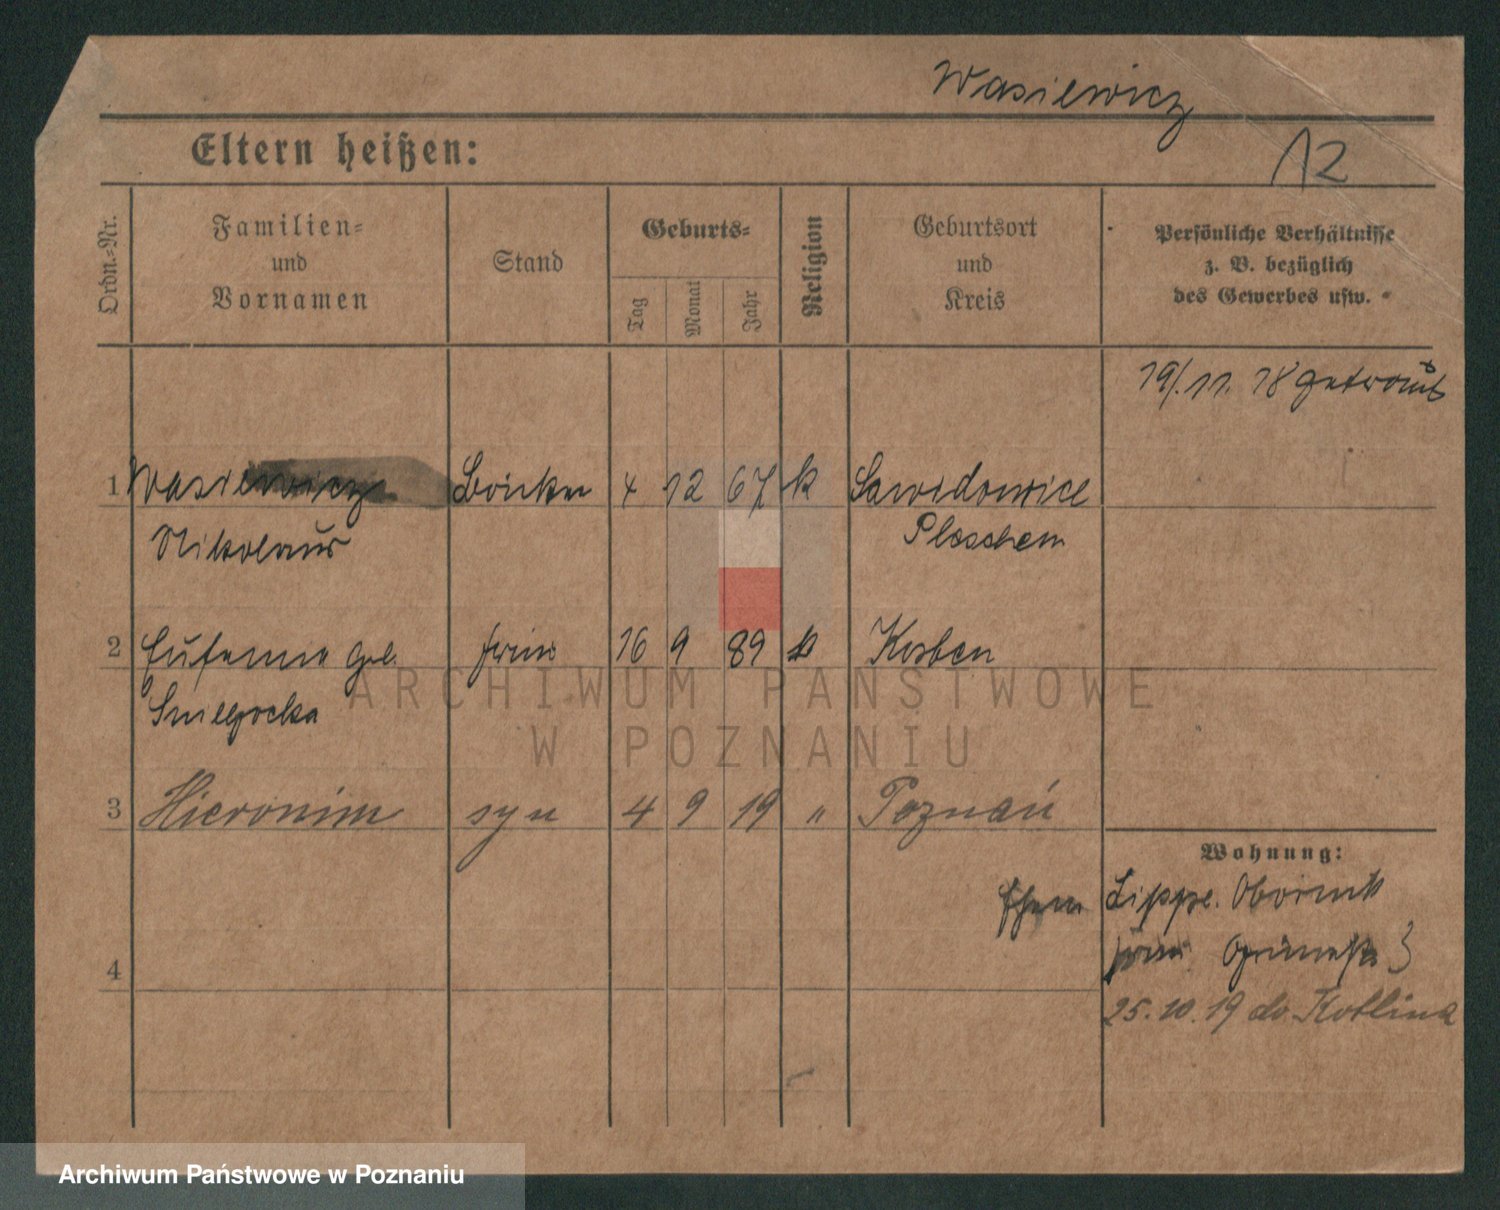 Wasiewicz
12
Eltern heißen:
Ordn.-Nr.
Familien- und Vornamen
Stand
Geburts-
Tag
Monat
Jahr
Religion
Geburtsort und Kreis
Persönliche Verhältnisse
z. B. bezüglich
des Gewerbes usw.
19/. 11. 18 getraut
1 Wasiewicz 4 12 67 k
Nikolaus Pleschen
2 geb. 16 9 89 k Kosten
3 Hieronim syn 4 9 19 " Poznań
Wohnung:
Lippe.
4
3
25.10.19 do Kotlina
ARCHIWUM PAŃSTWOWE
W POZNANIU
Archiwum Państwowe w Poznaniu